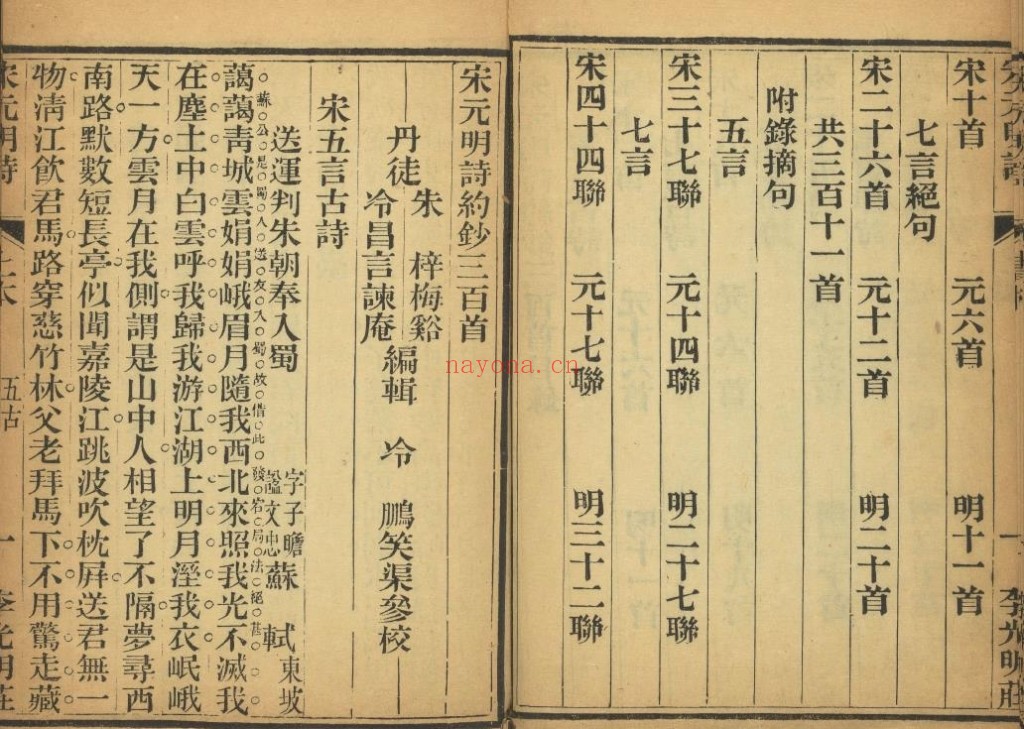 宋元明詩 一 李光明莊
宋十首 元六首 明十一首
七言絕句
宋二十六首 元十二首 明二十首
共三百十一首
附錄摘句
五言
宋三十七聯 元十四聯 明二十七聯
七言
宋四十四聯 元十七聯 明三十二聯
宋元明詩約鈔三百首
朱 梓梅谿
丹徒 編輯 冷 鵬笑渠參校
冷昌言諫庵
宋五言古詩
送運判朱朝奉入蜀 字子瞻諡文忠 蘇 軾 東坡
蘇公是蜀人送友入蜀故借此發宕局法絕甚
藹藹靑城雲娟娟峨眉月隨我西北來照我光不滅我
在塵土中白雲呼我歸我游江湖上明月溼我衣岷峨
天一方雲月在我側謂是山中人相望了不隔夢尋西
南路默數短長亭似聞嘉陵江跳波吹枕屛送君無一
物淸江飮君馬路穿慈竹林父老拜馬下不用驚走藏
宋元明詩 五古 一 李光明莊
nayona.cn